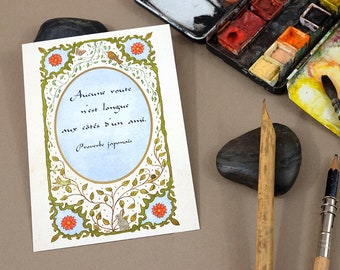 Aucune route
n'est longue
aux côtés d'un ami.
Proverbe japonais